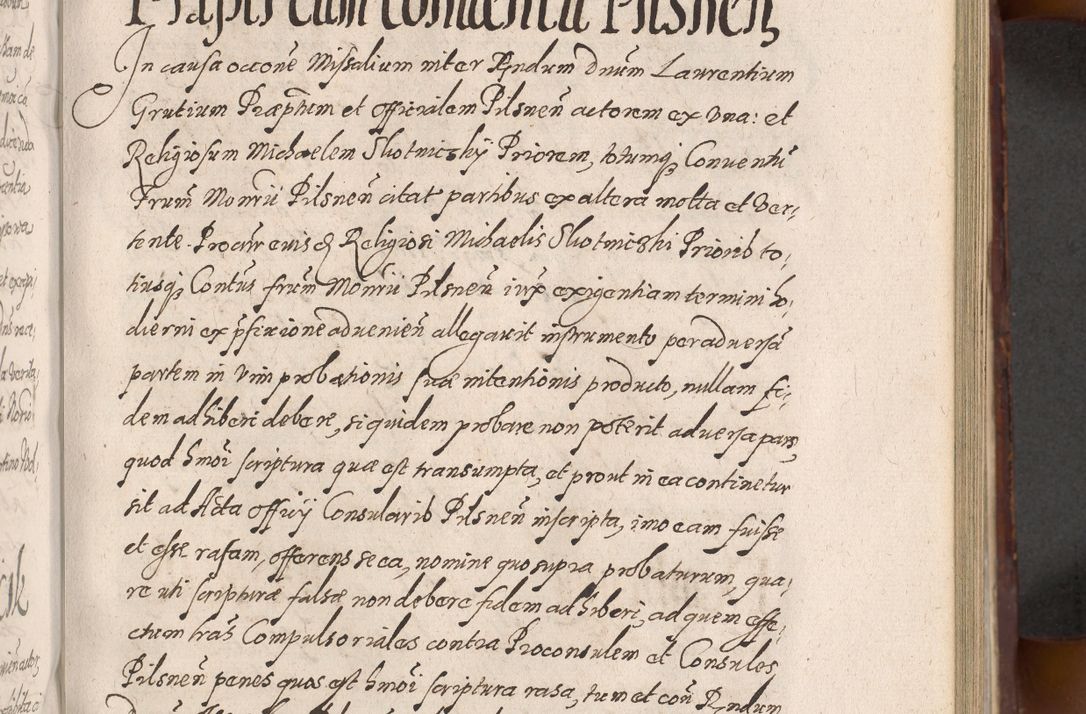 Præpti cum Conventu Pilsneñ
In causa occoñe Missalium inter Rndum Dnum Laurentium
Grutium Præptum et Officialem Pilsneñ actorem ex una: et
Religiosum Michaelem Slotniczkÿ Priorem, totumq Conventũ
Frum Monrii Pilsneñ citat partibus ex altera motta et ver,
tente. Procur eius q Religiosi Michaelis Slotniczki Prioris to,
tiusq Contus frum Monrii Pilsneñ iux exigentiam termini ho,
dierni ex pfixione advenieñ allegavit instrumento per adversã
partem in vim probationis suæ intentionis producto, nullam fi,
dem adhiberi debere, siquidem probare non poterit adversa pars,
quod hmoi scriptura quæ est transumpta, et prout in ea continetur
sit ad Acta Officÿ Consularis Pilsneñ inscripta, imo eam fuisse
et esse rasam, offerens se ea, nomine quo supra probaturum, qua,
re uti scripturæ falsæ non debere fidem adhiberi, ad quem effe,
ctum lras Compulsoriales contra Proconsulem et Consules
Pilsneñ penes quos est hmoi scriptura rasa, tum et con Rndum